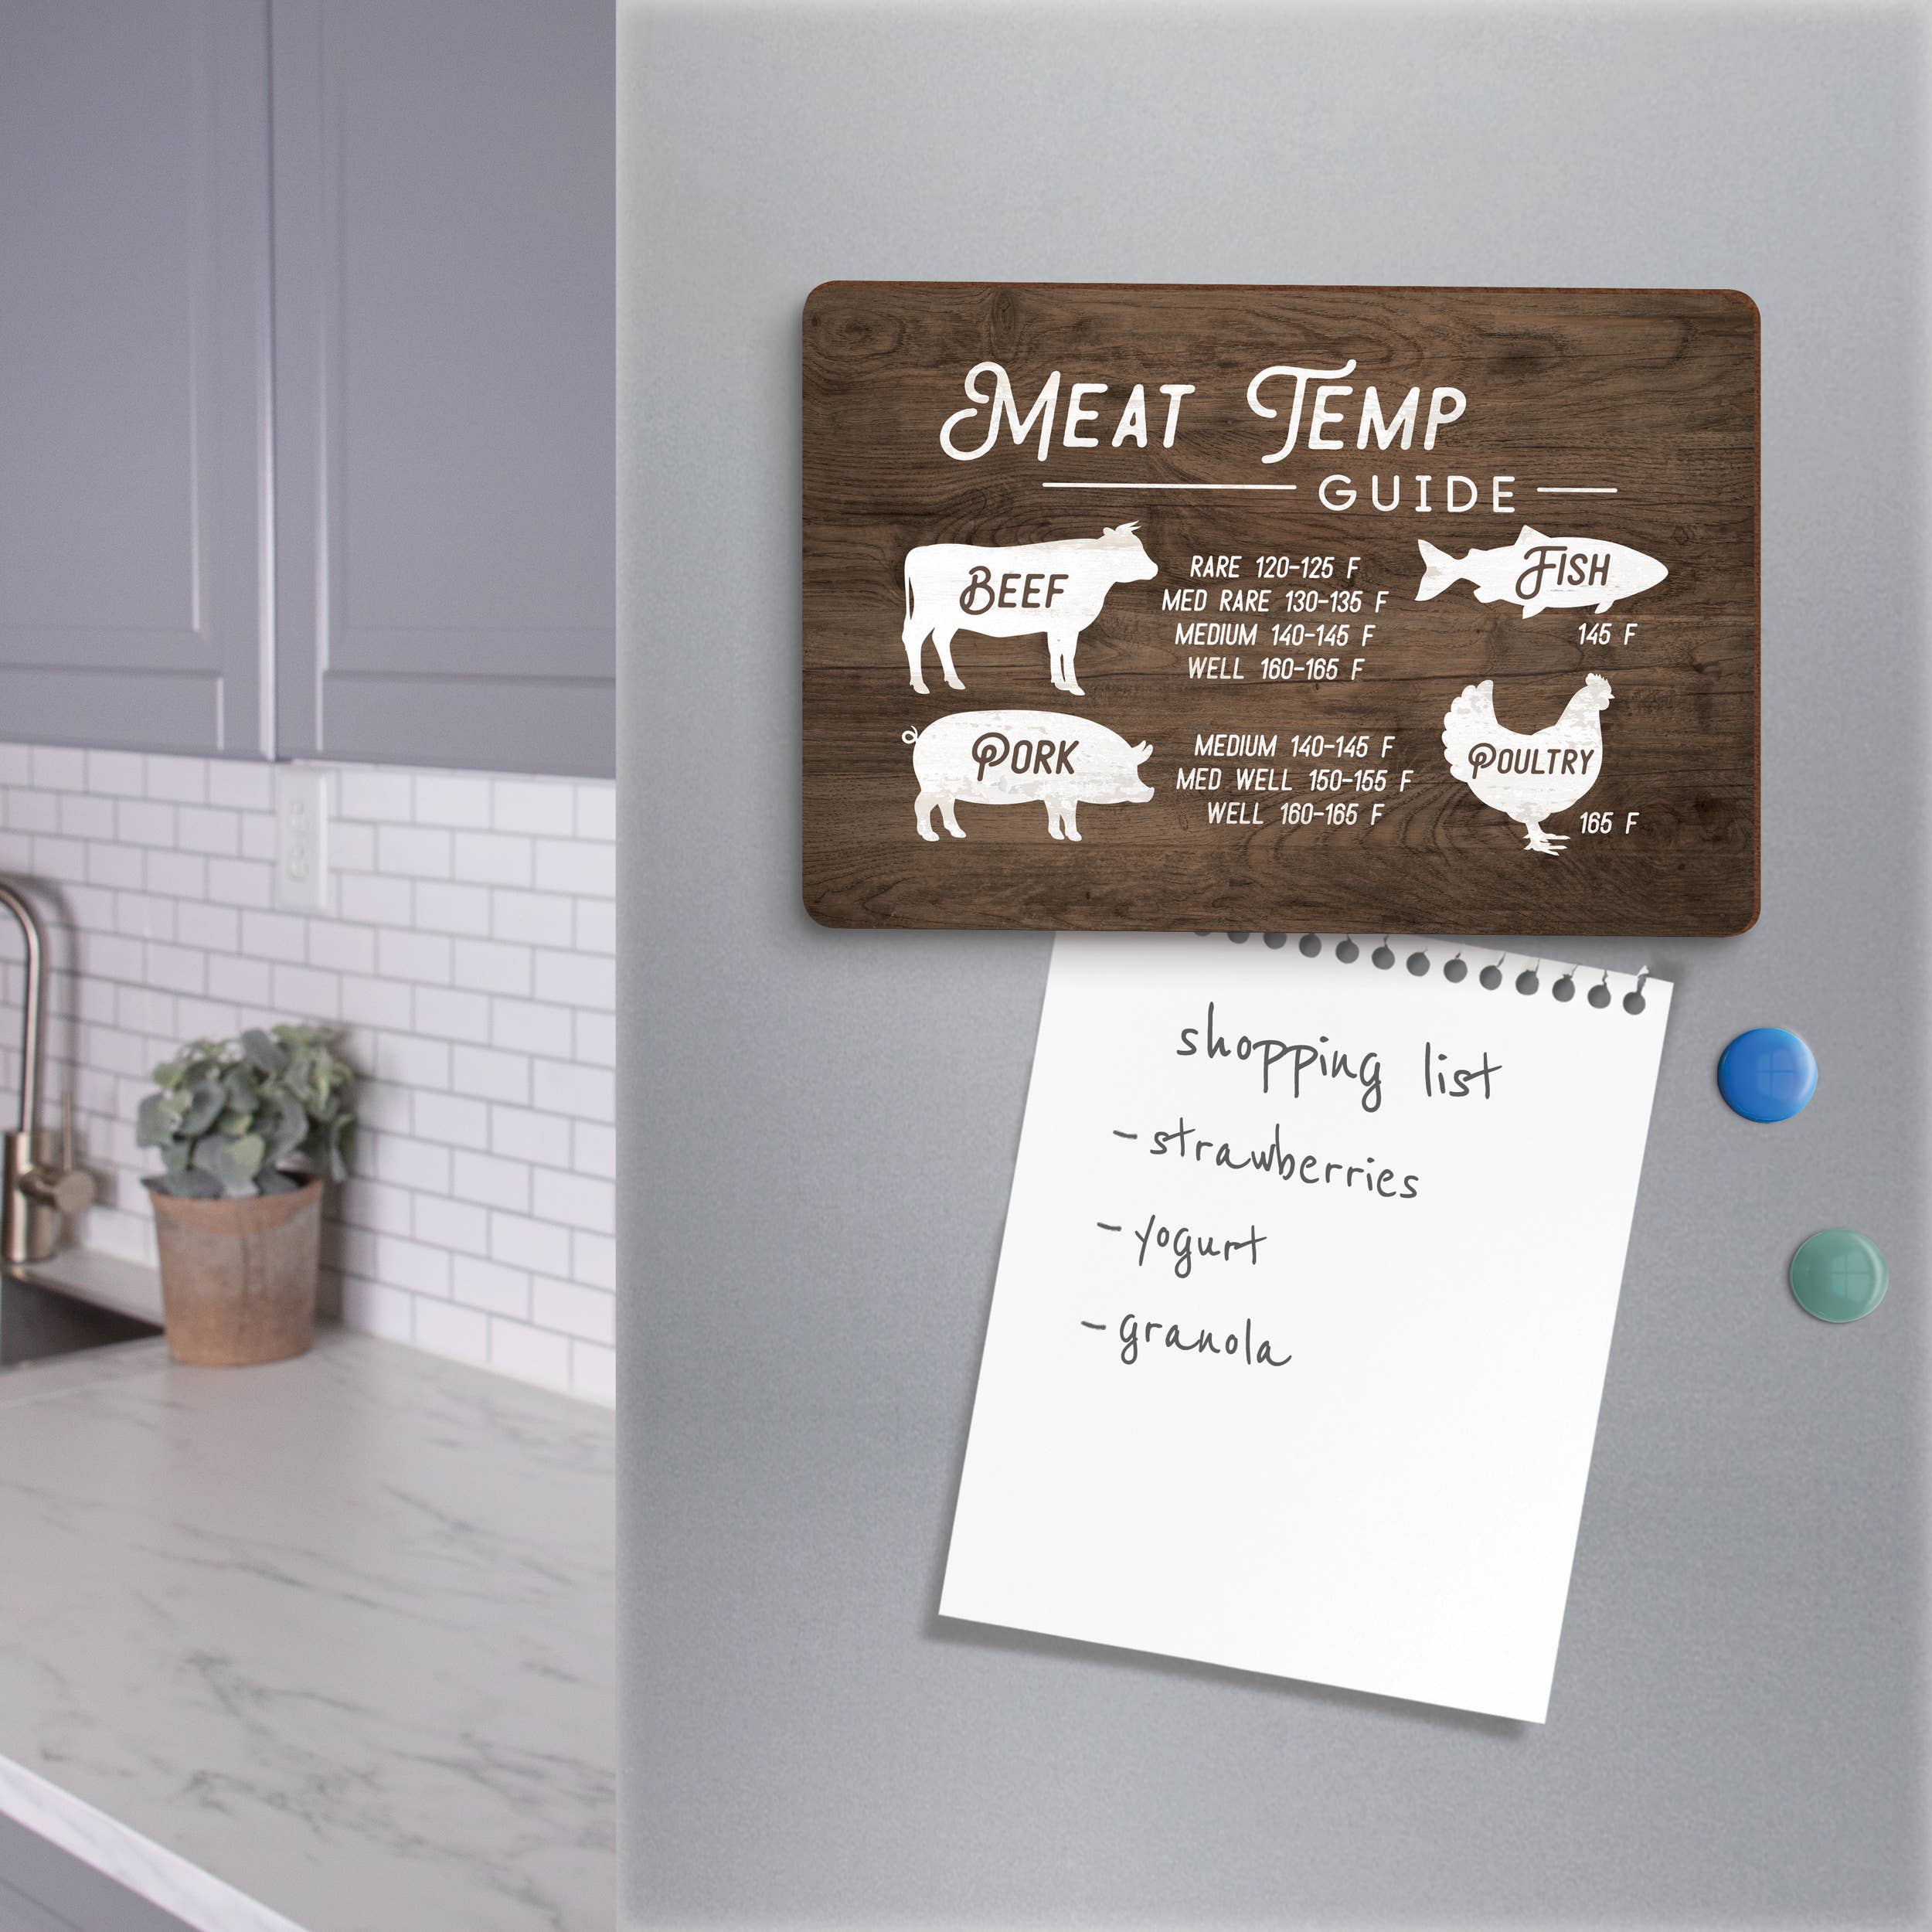 MEAT TEMP
GUIDE
BEEF
RARE 120-125 F
MED RARE 130-135 F
MEDIUM 140-145 F
WELL 160-165 F
FISH
145 F
PORK
MEDIUM 140-145 F
MED WELL 150-155 F
WELL 160-165 F
POULTRY
165 F
shopping list
- strawberries
- yogurt
- granola